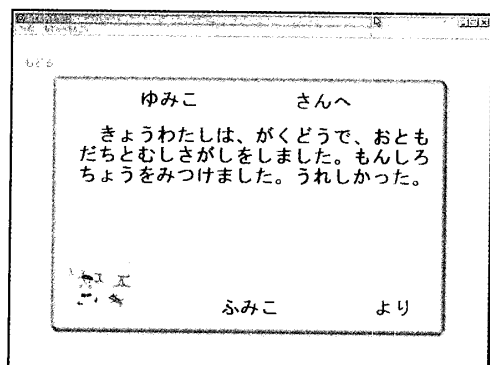 もどる
ゆみこ さんへ
きょうわたしは、がくどうで、おとも
だちとむしさがしをしました。もんしろ
ちょうをみつけました。うれしかった。
ふみこ より